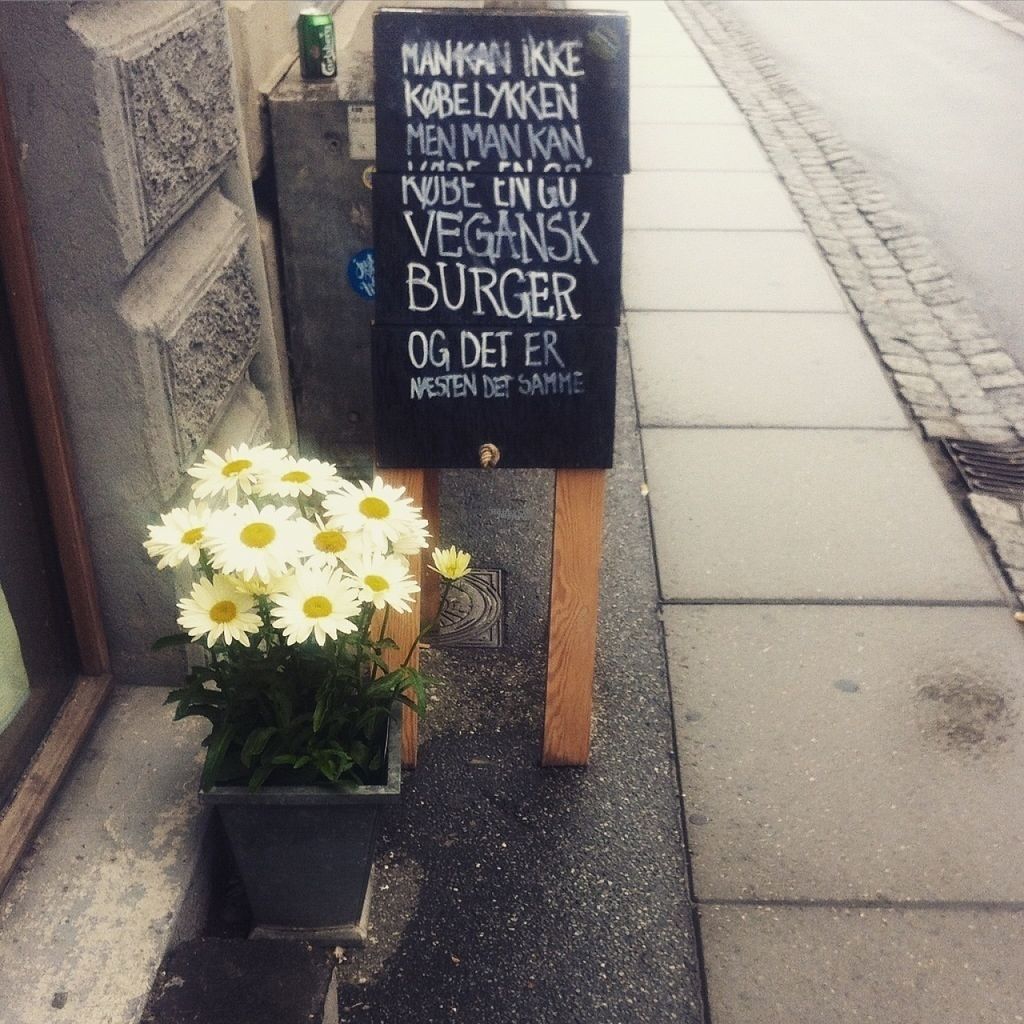 Carlsberg
MAN KAN IKKE
KØBE LYKKEN
MEN MAN KAN
KØBE EN GO'
VEGANSK
BURGER
OG DET ER
NÆSTEN DET SAMME